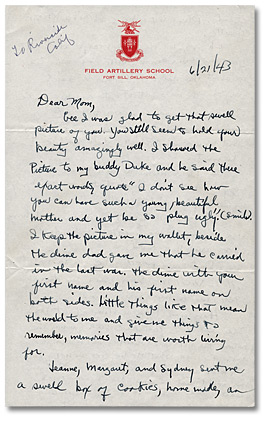 To Riverside
Calif
FIELD ARTILLERY SCHOOL
FORT SILL, OKLAHOMA
6/21/43
Dear Mom,
Gee I was glad to get that swell
picture of you. You still seem to hold your
beauty amazingly well. I showed the
Picture to my buddy Duke and he said these
exact words, quote "I don't see how
you can have such a young, beautiful
mother and yet be so plug ugly" (smile)
I keep the picture in my wallet, beside
the dime dad gave me that he carried
in the last war. The dime with your
first name and his first name on
both sides. Little things like that mean
the world to me and give me things to
remember, memories that are worth living
for.
Jeanne, Margaret, and Sydney sent me
a swell box of cookies, home made, an